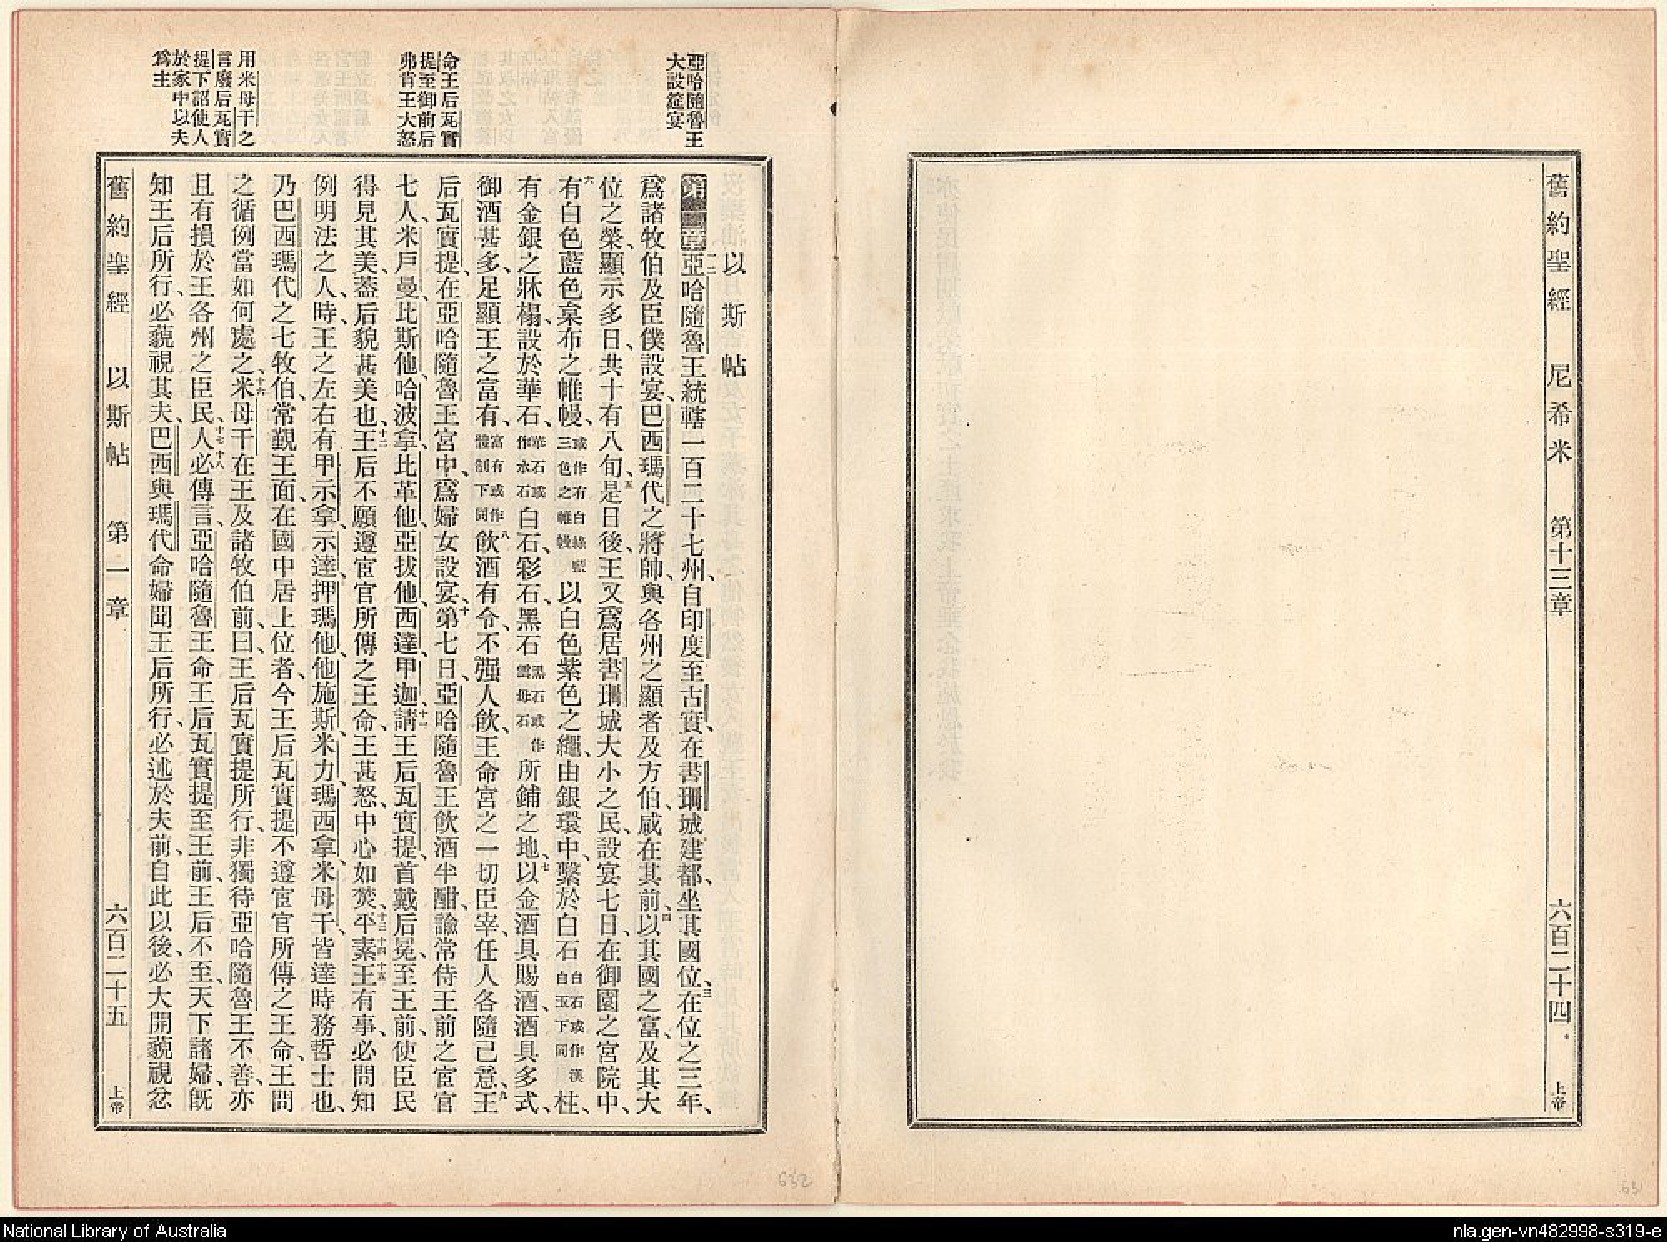 舊約聖經 尼希米 第十三章 六百二十四 上帝
亞哈隨魯王
大設筵宴
命王后瓦實
提至御前后
弗肯王大怒
用米母干之
言廢后瓦實
提下詔使人
於家中以夫
爲主
以斯帖
第一章亞哈隨魯王統轄一百二十七州、自印度至古實、在書珊城建都、坐其國位、三在位之三年、
爲諸牧伯及臣僕設宴、巴西瑪代之將帥、與各州之顯者及方伯、咸在其前、四以其國之富、及其大
位之榮、顯示多日、共十有八旬、五是日後、王又爲居書珊城大小之民、設宴七日、在御園之宮院中、
六有白色藍色枲布之帷幔、或作有白綠藍三色之帷幔以白色紫色之繩、由銀環中、繫於白石白石或作漢白玉下同柱、
有金銀之牀榻、設於華石、華石或作水石白石、彩石、黑石黑石或作雲母石所鋪之地、七以金酒具賜酒、酒具多式、
御酒甚多、足顯王之富有、富有或作體制下同八飲酒有令、不强人飲、王命宮之一切臣宰、任人各隨己意、九王
后瓦實提、在亞哈隨魯王宮中、爲婦女設宴、十第七日、亞哈隨魯王飲酒半酣、諭常侍王前之宦官
七人、米戶曼、比斯他、哈波拿、比革他、亞拔他、西達、甲迦、十一請王后瓦實提、首戴后冕、至王前、使臣民
得見其美、蓋后貌甚美也、十二王后不願遵宦官所傳之王命、王甚怒、中心如焚、十三十四十五平素王有事、必問知
例明法之人、時王之左右有甲示拿、示達、押瑪他、他施斯、米力、瑪西拿、米母干、皆達時務哲士也、
乃巴西瑪代之七牧伯、常覲王面、在國中居上位者、今王后瓦實提不遵宦官所傳之王命、王問
之循例當如何處之、十六米母干在王及諸牧伯前、曰、王后瓦實提所行、非獨待亞哈隨魯王不善、亦
且有損於王各州之臣民、十七十八人必傳言、亞哈隨魯王命王后瓦實提至王前、王后不至、天下諸婦、旣
知王后所行、必藐視其夫、巴西與瑪代命婦聞王后所行、必述於夫前、自此以後、必大開藐視忿
舊約聖經 以斯帖 第一章 六百二十五 上帝
632
631
National Library of Australia
nla.gen-vn482998-s319-e